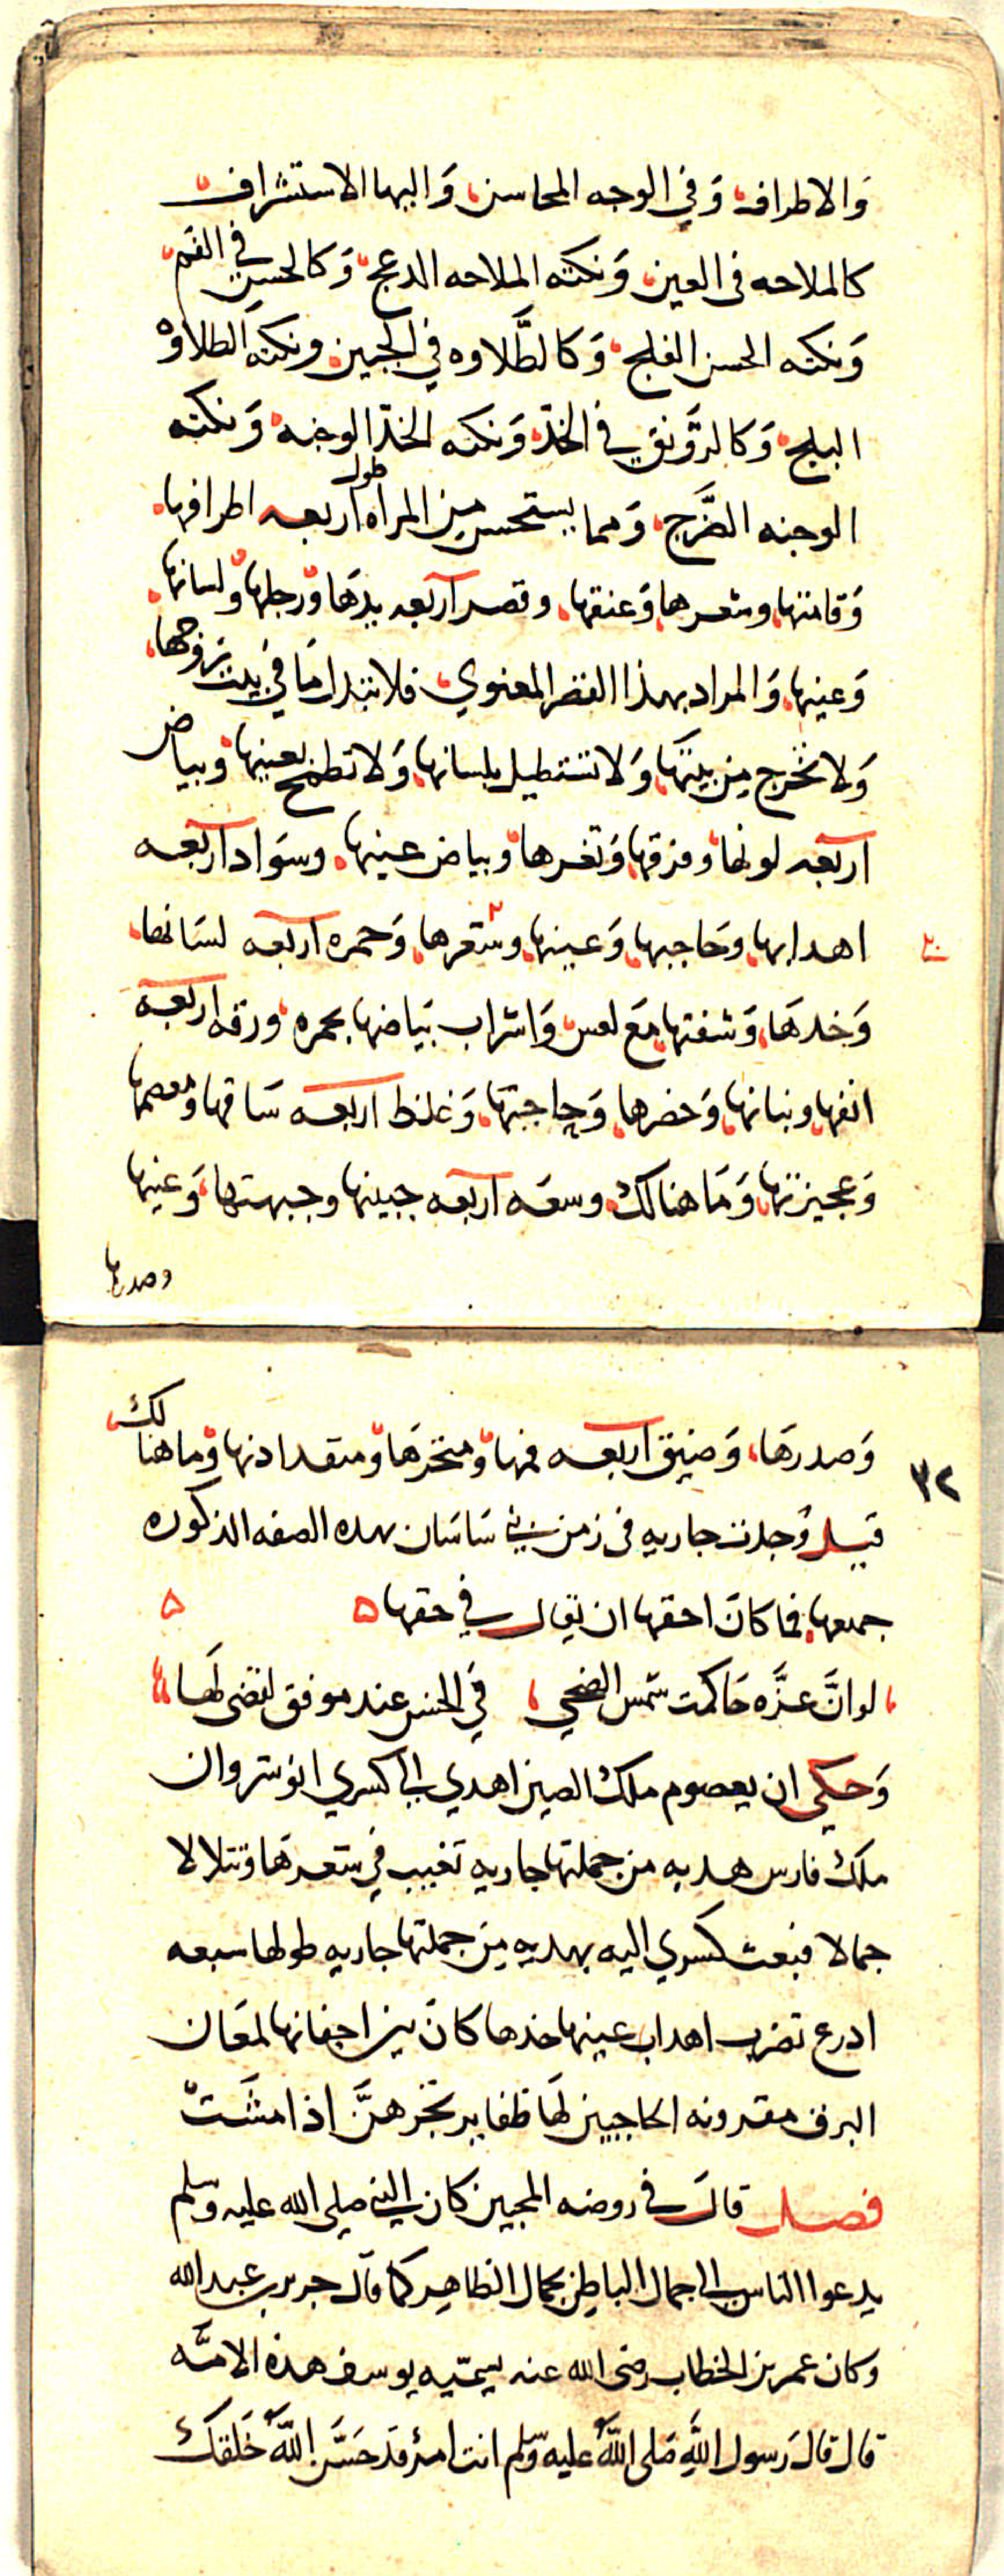 والاطراف وفي الوجه المحاسن واليها الاستشراف
كالملاحه فى العين ونكته الملاحه الدعج وكالحسن في الفم
ونكته الحسن الفلج وكالطَّلاوه في الجبين ونكته الطلاوه
البلج وكالرَّونق في الخدّ ونكته الخدّ الوجنه ونكته
الوجنه الضَّرَج ومما يستحسن من المراه طول اربعه اطرافها
وقامتها وشعرها وعنقها وقصر اربعه يدها ورجلها ولسانها
وعينها والمراد بهذا القصر المعنوي فلا تبذل ما في بيت زوجها
ولا تخرج من بيتها ولا تستطيل بلسانها ولا تطمح بعينها وبياض
اربعه لونها وفرقها وثغرها وبياض عينها وسواد اربعه
اهدابها وحاجبها وعينها وشعرها وحمره اربعه لسانها
وخدها وشفتها مع لعس واشراب بياضها بحمره ورقه اربعه
انفها وبنانها وخصرها وحاجبها وغلظ اربعه ساقها ومعصمها
وعجيزتها وما هنالك وسعه اربعه جبينها وجبهتها وعينها
وصدرها
٣٢
وصدرها وضيق اربعه فمها ومنخرها ومنفذ اذنها وما هنالك
قيل وُجدت جاريه فى زمن بني ساسان بهده الصفه المذكوره
جمعها فما كان احقها ان يقال في حقها
لو انَّ عزَّه حاكمت شمس الضحى في الحسن عند موفق لقضى لها
وحكي ان يعصوم ملك الصين اهدي الى كسري انوشروان
ملك فارس هديه من جملتها جاريه تغيب في شعرها وتتلالا
جمالا فبعث كسري اليه بهديه من جملتها جاريه طولها سبعه
ادرع تضرب اهداب عينها خدها كان بين اجفانها لمعان
البرق مقرونه الحاجبين لها ظفاير تجرهنَّ اذا مشَتْ
فصل قال في روضه المحبين كان النبي صلى الله عليه وسلم
يدعوا الناس الى جمال الباطن بجمال الظاهر كما قال جرير بن عبد الله
وكان عمر بن الخطاب رضى الله عنه يسمّيه يوسف هذه الامَّه
قال قال رسول الله صلى الله عليه وسلم انت امرؤ قد حسَّن الله خلقك